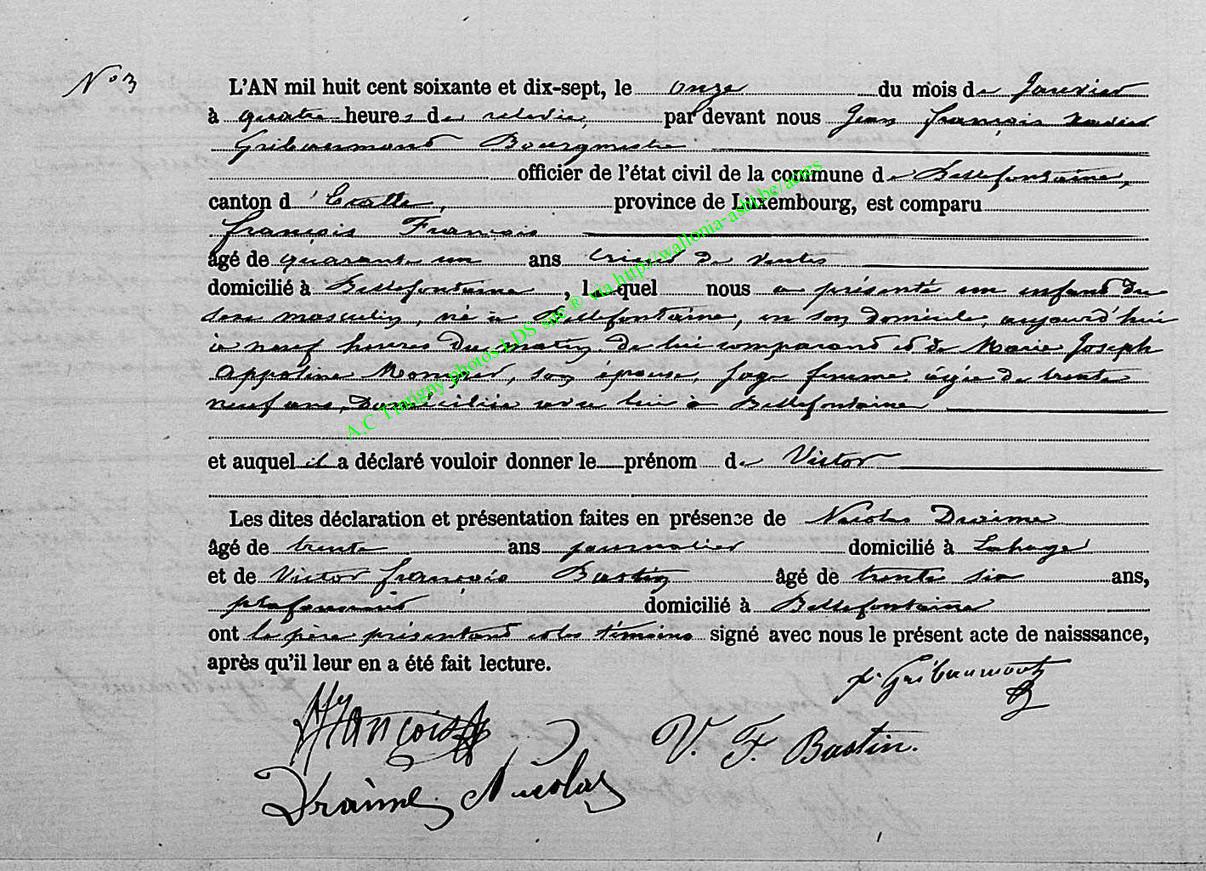 N° 3
L'AN mil huit cent soixante et dix-sept, le onze du mois de Janvier
à quatre heures de relevée, par devant nous Jean François Xavier
Gribaumont Bourgmestre
officier de l'état civil de la commune de Bellefontaine,
canton d'Etalle, province de Luxembourg, est comparu
François François
âgé de quarante un ans crieur de ventes
domicilié à Bellefontaine, lequel nous a présenté un enfant du
sexe masculin, né à Bellefontaine, en son domicile, aujourd'hui
à neuf heures du matin, de lui comparant et de Marie Joseph
Appoline son épouse, sage femme, âgée de trente
neuf ans, domiciliée avec lui à Bellefontaine
et auquel il a déclaré vouloir donner le prénom de Victor
Les dites déclaration et présentation faites en présence de Nicolas Draime
âgé de trente ans journalier domicilié à Lahage
et de Victor François Bastin âgé de trente six ans,
domicilié à Bellefontaine
ont le père présentant et les témoins signé avec nous le présent acte de naisssance,
après qu'il leur en a été fait lecture.
x. Gribaumont
François
V. F. Bastin.
Draime Nicolas
A.C Tintigny photos LDS sûr ® via http://wallonia-asbl.be/actes